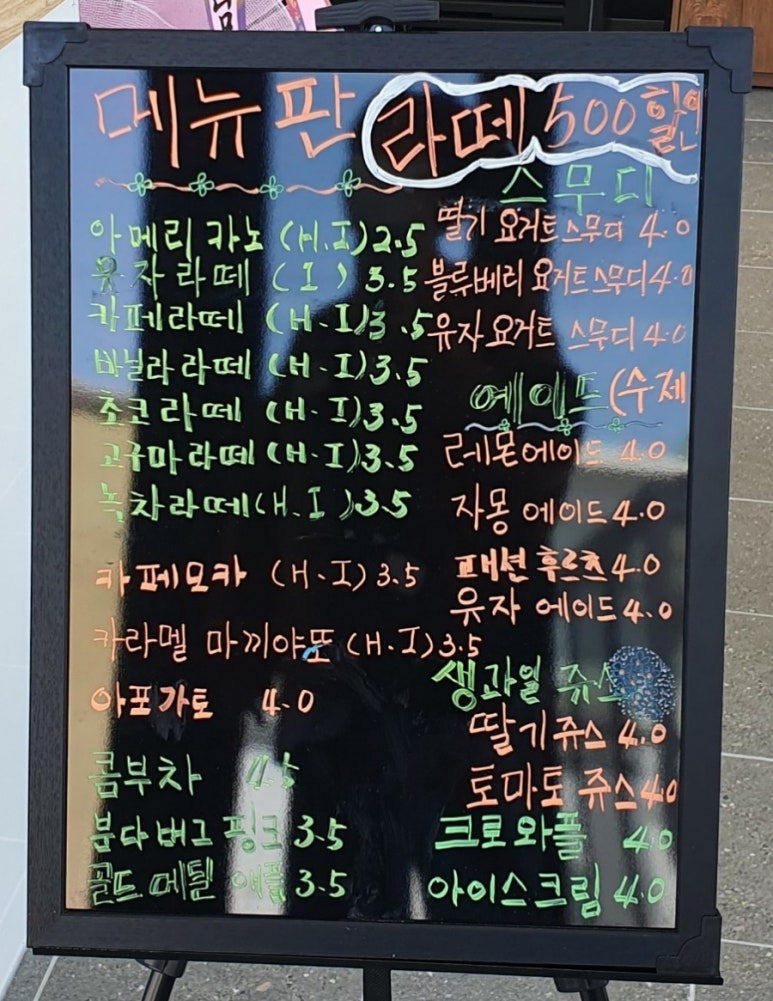 메뉴판
라떼 500 할인
아메리카노 (H.I) 2.5
유자라떼 (I) 3.5
카페라떼 (H.I) 3.5
바닐라라떼 (H.I) 3.5
초코라떼 (H.I) 3.5
고구마라떼 (H.I) 3.5
녹차라떼 (H.I) 3.5
카페모카 (H.I) 3.5
카라멜 마끼야또 (H.I) 3.5
아포가토 4.0
콤부차 4.5
붐다버그 핑크 3.5
골드메달 애플 3.5
스무디
딸기 요거트스무디 4.0
블루베리 요거트스무디 4.0
유자요거트 스무디 4.0
에이드 (수제
레몬에이드 4.0
자몽 에이드 4.0
패션후르츠 4.0
유자 에이드 4.0
생과일 쥬스
딸기쥬스 4.0
토마토 쥬스 4.0
크로와플 4.0
아이스크림 4.0